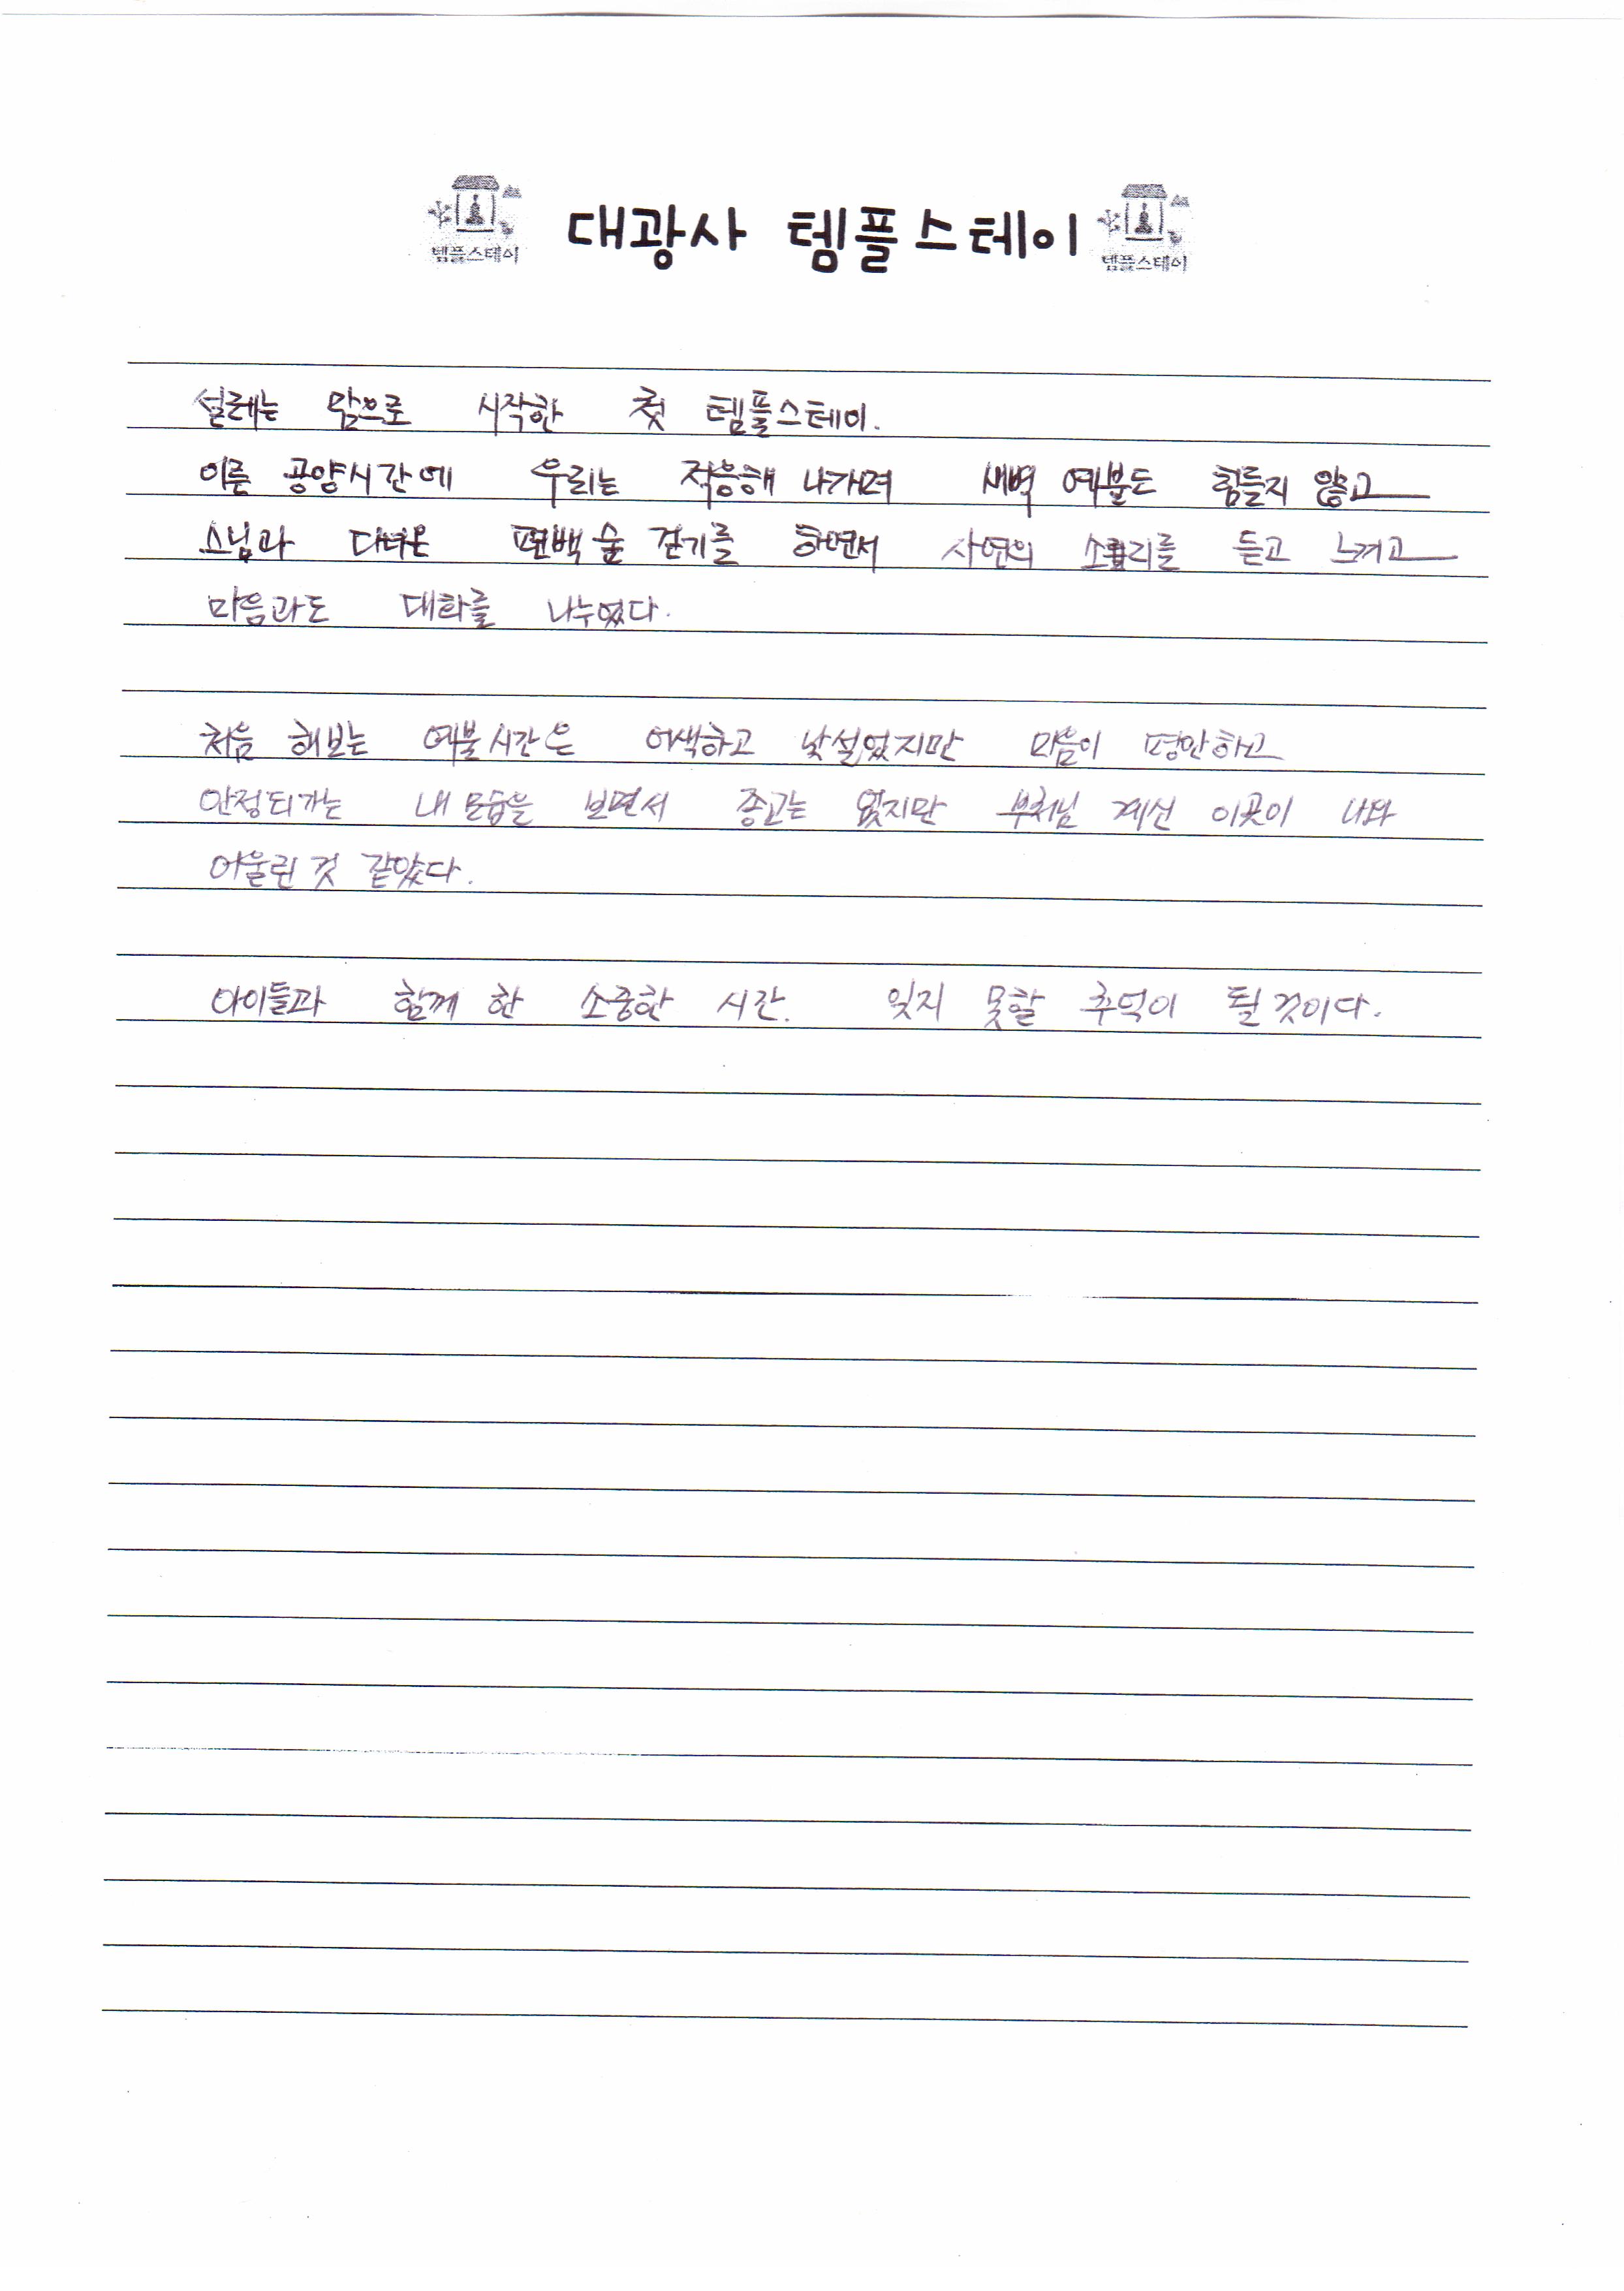 템플스테이 대광사 템플스테이 템플스테이
설레는 맘으로 시작한 첫 템플스테이.
이른 공양시간에 우리는 적응해 나가며 새벽 예불도 힘들지 않고
스님과 다녀온 편백 숲 걷기를 하면서 자연의 소리를 듣고 느끼고
마음과도 대화를 나누었다.
처음 해보는 예불시간은 어색하고 낯설었지만 마음이 평안하고
안정되가는 내 모습을 보면서 종교는 없지만 부처님 계신 이곳이 나와
어울린 것 같았다.
아이들과 함께 한 소중한 시간. 잊지 못할 추억이 될 것이다.